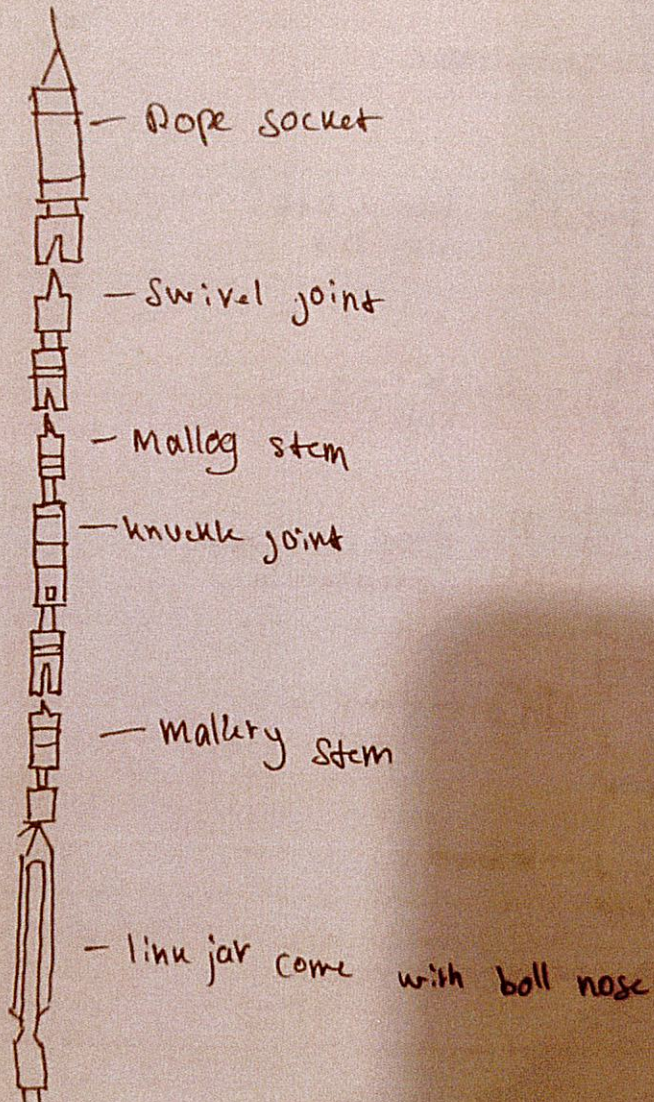 Rope socket
Swivel joint
Mallog stem
knuckle joint
Mallery stem
link jar come with boll nose